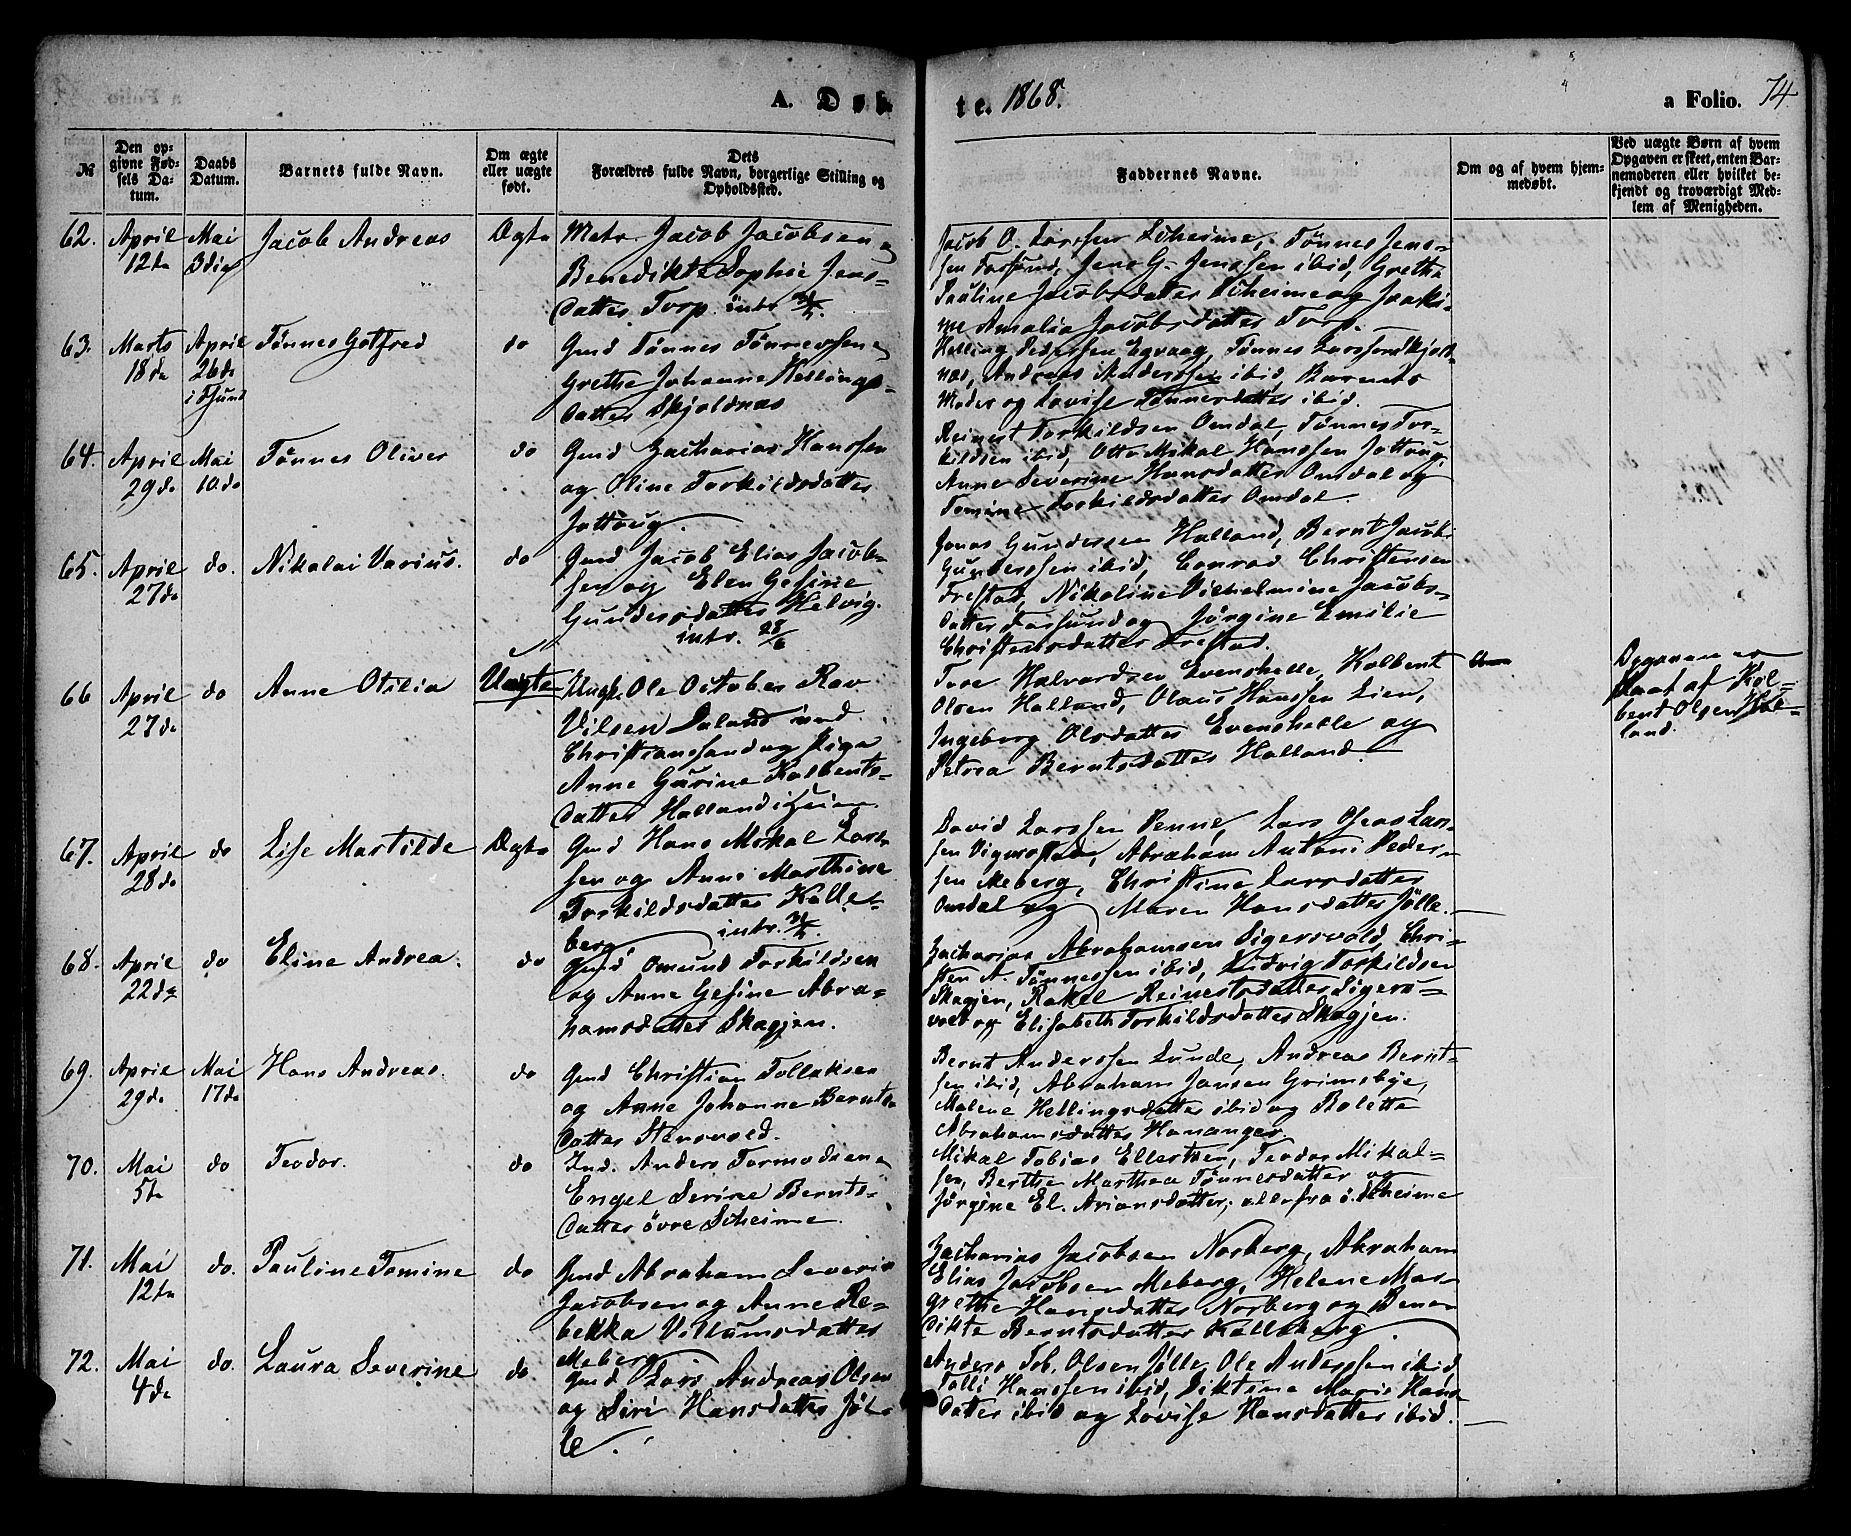 A. Døb
te. 1868.
a Folio. 74.
№
Den opgivne Fødsels Datum.
Daabs Datum.
Barnets fulde Navn.
Om ægte eller uægte født.
Dets Forældres fulde Navn, borgerlige Stilling og Opholdssted.
Faddernes Navne.
Om og af hvem hjemmedøbt.
Ved uægte Børn af hvem Opgaven er skeet, enten Barnemoderen eller hvilket bekjendt og troværdigt Medlem af Menigheden.
62. April 12te Mai 3die Jacob Andreas Ægte
Matr. Jacob Jacobsen og
Benedikte Sophie Jens-
datter Torp. intr.
Jacob O. Larssen Scheime, Tønnes Jens-
sen Farsund, Jens G. Jenssen ibid, Grethe
Pauline Jacobsdatter Scheime og Joaki-
me Amalia Jacobsdatter Torp.
63. Marts 18de April 26de i Fsund Tønnes Gotfred do
Gmd Tønnes Tønnessen og
Grethe Johanne Hellings-
datter Skjoldnæs
Helling Pederssen Egvaag, Tønnes Larssen Skjold-
næs, Andreas Anderssen ibid, Barnets
Moder og Lovise Tønnesdatter ibid.
64. April 29de Mai 10de Tønnes Oliver do
Gmd Zacharias Hanssen
og Oline Torkildsdatter
Jøttoug.
Reinert Torkildsen Omdal, Tønnes Tor-
kildsen ibid, Otto Mikal Hanssen Jøttoug,
Anne Severine Hansdatter Omdal og
Tomine Torkildsdatter Omdal.
65. April 27de do. Nikolai Varius. do
Gmd Jacob Elias Jacob-
sen og Elen Gesine
Gundersdatter Helvig.
intr. 28/6
Jonas Gunderssen Halland, Bernt Jacob
Gunderssen ibid, Conrad Christensen
Frestad, Nikoline Vilhelmine Jacobs-
datter Farsund og Jørgine Emilie
Christensdatter Frestad.
66 April 27de do Anne Otilia Uægte
Ungk. Ole October Rav
Vilsen Daland ved
Christianssand og Pige
Anne Gurine Kolbents-
datter Halland i
Tore Halvardsen Evenshelle, Kolbent
Olsen Halland, Olaus Hanssen Lien,
Ingeborg Olsdatter Evenshelle og
Petrea Berntsdatter Halland.
Opgaven er
skeet af Kol-
bent Olsen Hal-
land.
67. April 28de do Lise Martilde Ægte
Gmd Hans Mikal Lars-
sen og Anne Marthine
Torkildsdatter Kalle-
berg. intr.
David Larssen Penne, Lars Oseas Lar-
sen Vigmostad, Abraham Antoni Peder-
sen Meberg, Christine Larsdatter
Omdal og Maren Hansdatter Jølle.
68. April 22de do Eline Andrea. do
Gmd Omund Torkildsen
og Anne Gesine Abra-
hamsdatter Skagjen.
Zacharias Abrahamsen Sigersvold, Chri-
sten A. Tønnessen ibid, Ludvig Torkildsen
Skagjen, Rakel Reinertsdatter Sigers-
vold og Elisabeth Torkildsdatter Skagjen.
69. April 29de Mai 17de Hans Andreas. do
Gmd Christian Tollaksen
og Anne Johanne Bernts-
datter Stensvold.
Bernt Anderssen Lunde, Andreas Bernt-
sen ibid, Abraham Jansen Grimsbye,
Malene Hellingsdatter ibid og Bolette
Abrahamsdatter Hananger.
70. Mai 5te do Teodor. do
Ind. Anders Tormodsen og
Engel Serine Bernts-
datter øvre Scheime.
Mikal Tobias Ellertsen, Teodor Mikal-
sen, Berthe Marthea Tønnesdatter og
Jørgine El. Ariansdatter, alle fra ø. Scheime
71. Mai 12te do. Pauline Tomine do
Gmd Abraham Severin
Jacobsen og Anne Re-
bekka Villumsdatter
Meberg
Zacharias Jacobsen Norberg, Abraham
Elias Jacobsen Meberg, Helene Mar-
grethe Hansdatter Norberg og Bene-
dikte Berntsdatter Kalleberg
72. Mai 4de do. Laura Severine do.
Gmd Lars Andreas Olsen
og Siri Hansdatter Jøl-
le.
Anders Tob. Olsen Jølle, Ole Anderssen ibid,
Tolli Hanssen ibid, Diktine Marie Hans-
datter ibid og Lovise Hansdatter ibid.